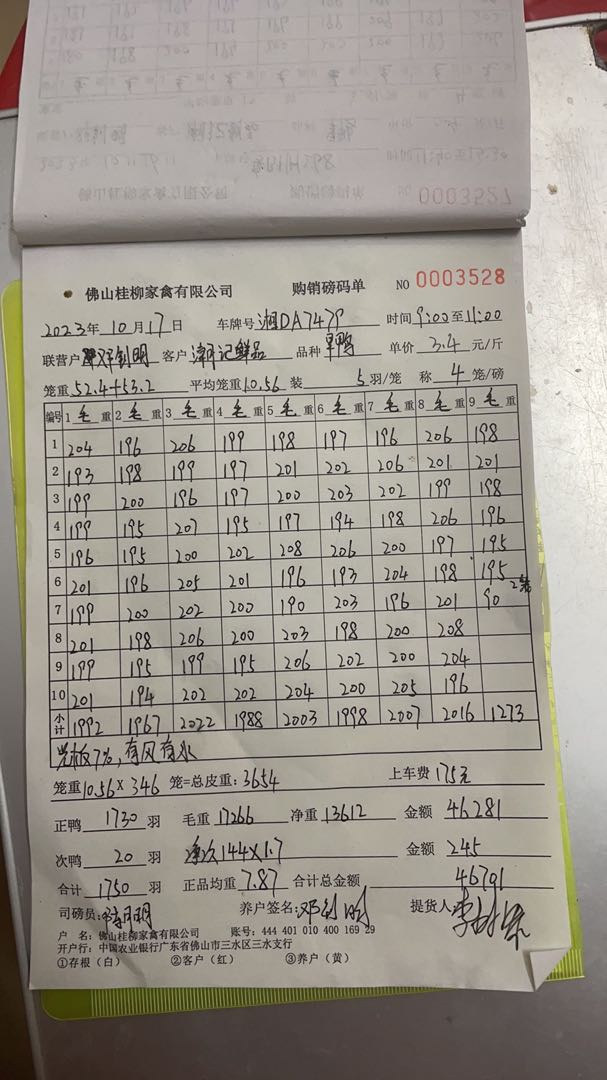 0003527
佛山桂柳家禽有限公司 购销磅码单 NO 0003528
2023年 10月 17日 车牌号 湘DA7479 时间 9:00至11:00
联营户 邓利明 客户 潮记鲜品 品种 旱鸭 单价 3.4 元/斤
笼重 52.4+53.2 平均笼重 10.56 装 5 羽/笼 称 4 笼/磅
编号 1 毛重 2 毛重 3 毛重 4 毛重 5 毛重 6 毛重 7 毛重 8 毛重 9 毛重
1 204 196 206 199 198 197 196 206 198
2 193 198 199 197 201 202 206 201 201
3 199 200 196 197 200 203 202 199 198
4 199 195 207 195 197 194 198 206 196
5 196 195 200 202 208 206 200 197 195
6 201 196 205 201 196 193 204 198 195
7 199 200 202 200 190 203 196 201 90 2笼
8 201 198 206 200 203 198 200 208
9 199 195 199 195 206 202 200 204
10 201 194 202 202 204 200 205 196
小计 1992 1967 2022 1988 2003 1998 2007 2016 1273
光板7%,有风有水
笼重10.56×346 笼=总皮重:3654 上车费 175元
正鸭 1730 羽 毛重 17266 净重 13612 金额 46281
次鸭 20 羽 净次144×1.7 金额 245
合计 1750 羽 正品均重 7.87 合计总金额 46701
司磅员: 养户签名:邓利明 提货人:
户 名:佛山桂柳家禽有限公司 账号:444 401 010 400 169 29
开户行:中国农业银行广东省佛山市三水区三水支行
①存根(白) ②客户(红) ③养户(黄)